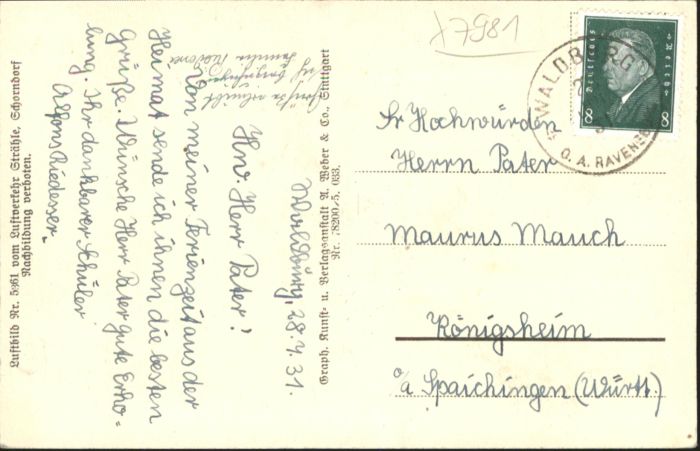 Luftbild Nr. 5961 vom Luftverkehr Strähle, Schorndorf
Nachbildung verboten.
Waldburg, 28.7.31.
Hw Herr Pater!
Von meiner Ferienzeit aus der
Heimat sende ich ihnen die besten
Grüße. Wünsche Herr Pater gute Erho-
lung. Ihr dankbarer Schüler
Alfons Riedesser.
Familie
Graph. Kunst- u. Verlagsanstalt A. Weber & Co., Stuttgart
Nr. 78200-5. 033.
7981
WALDBURG
O. A. RAVENSB
Deutsches Reich
8 8
Sr Hochwürden
Herrn Pater
Maurus Mauch
Königsheim
o/a Spaichingen (Württ.)